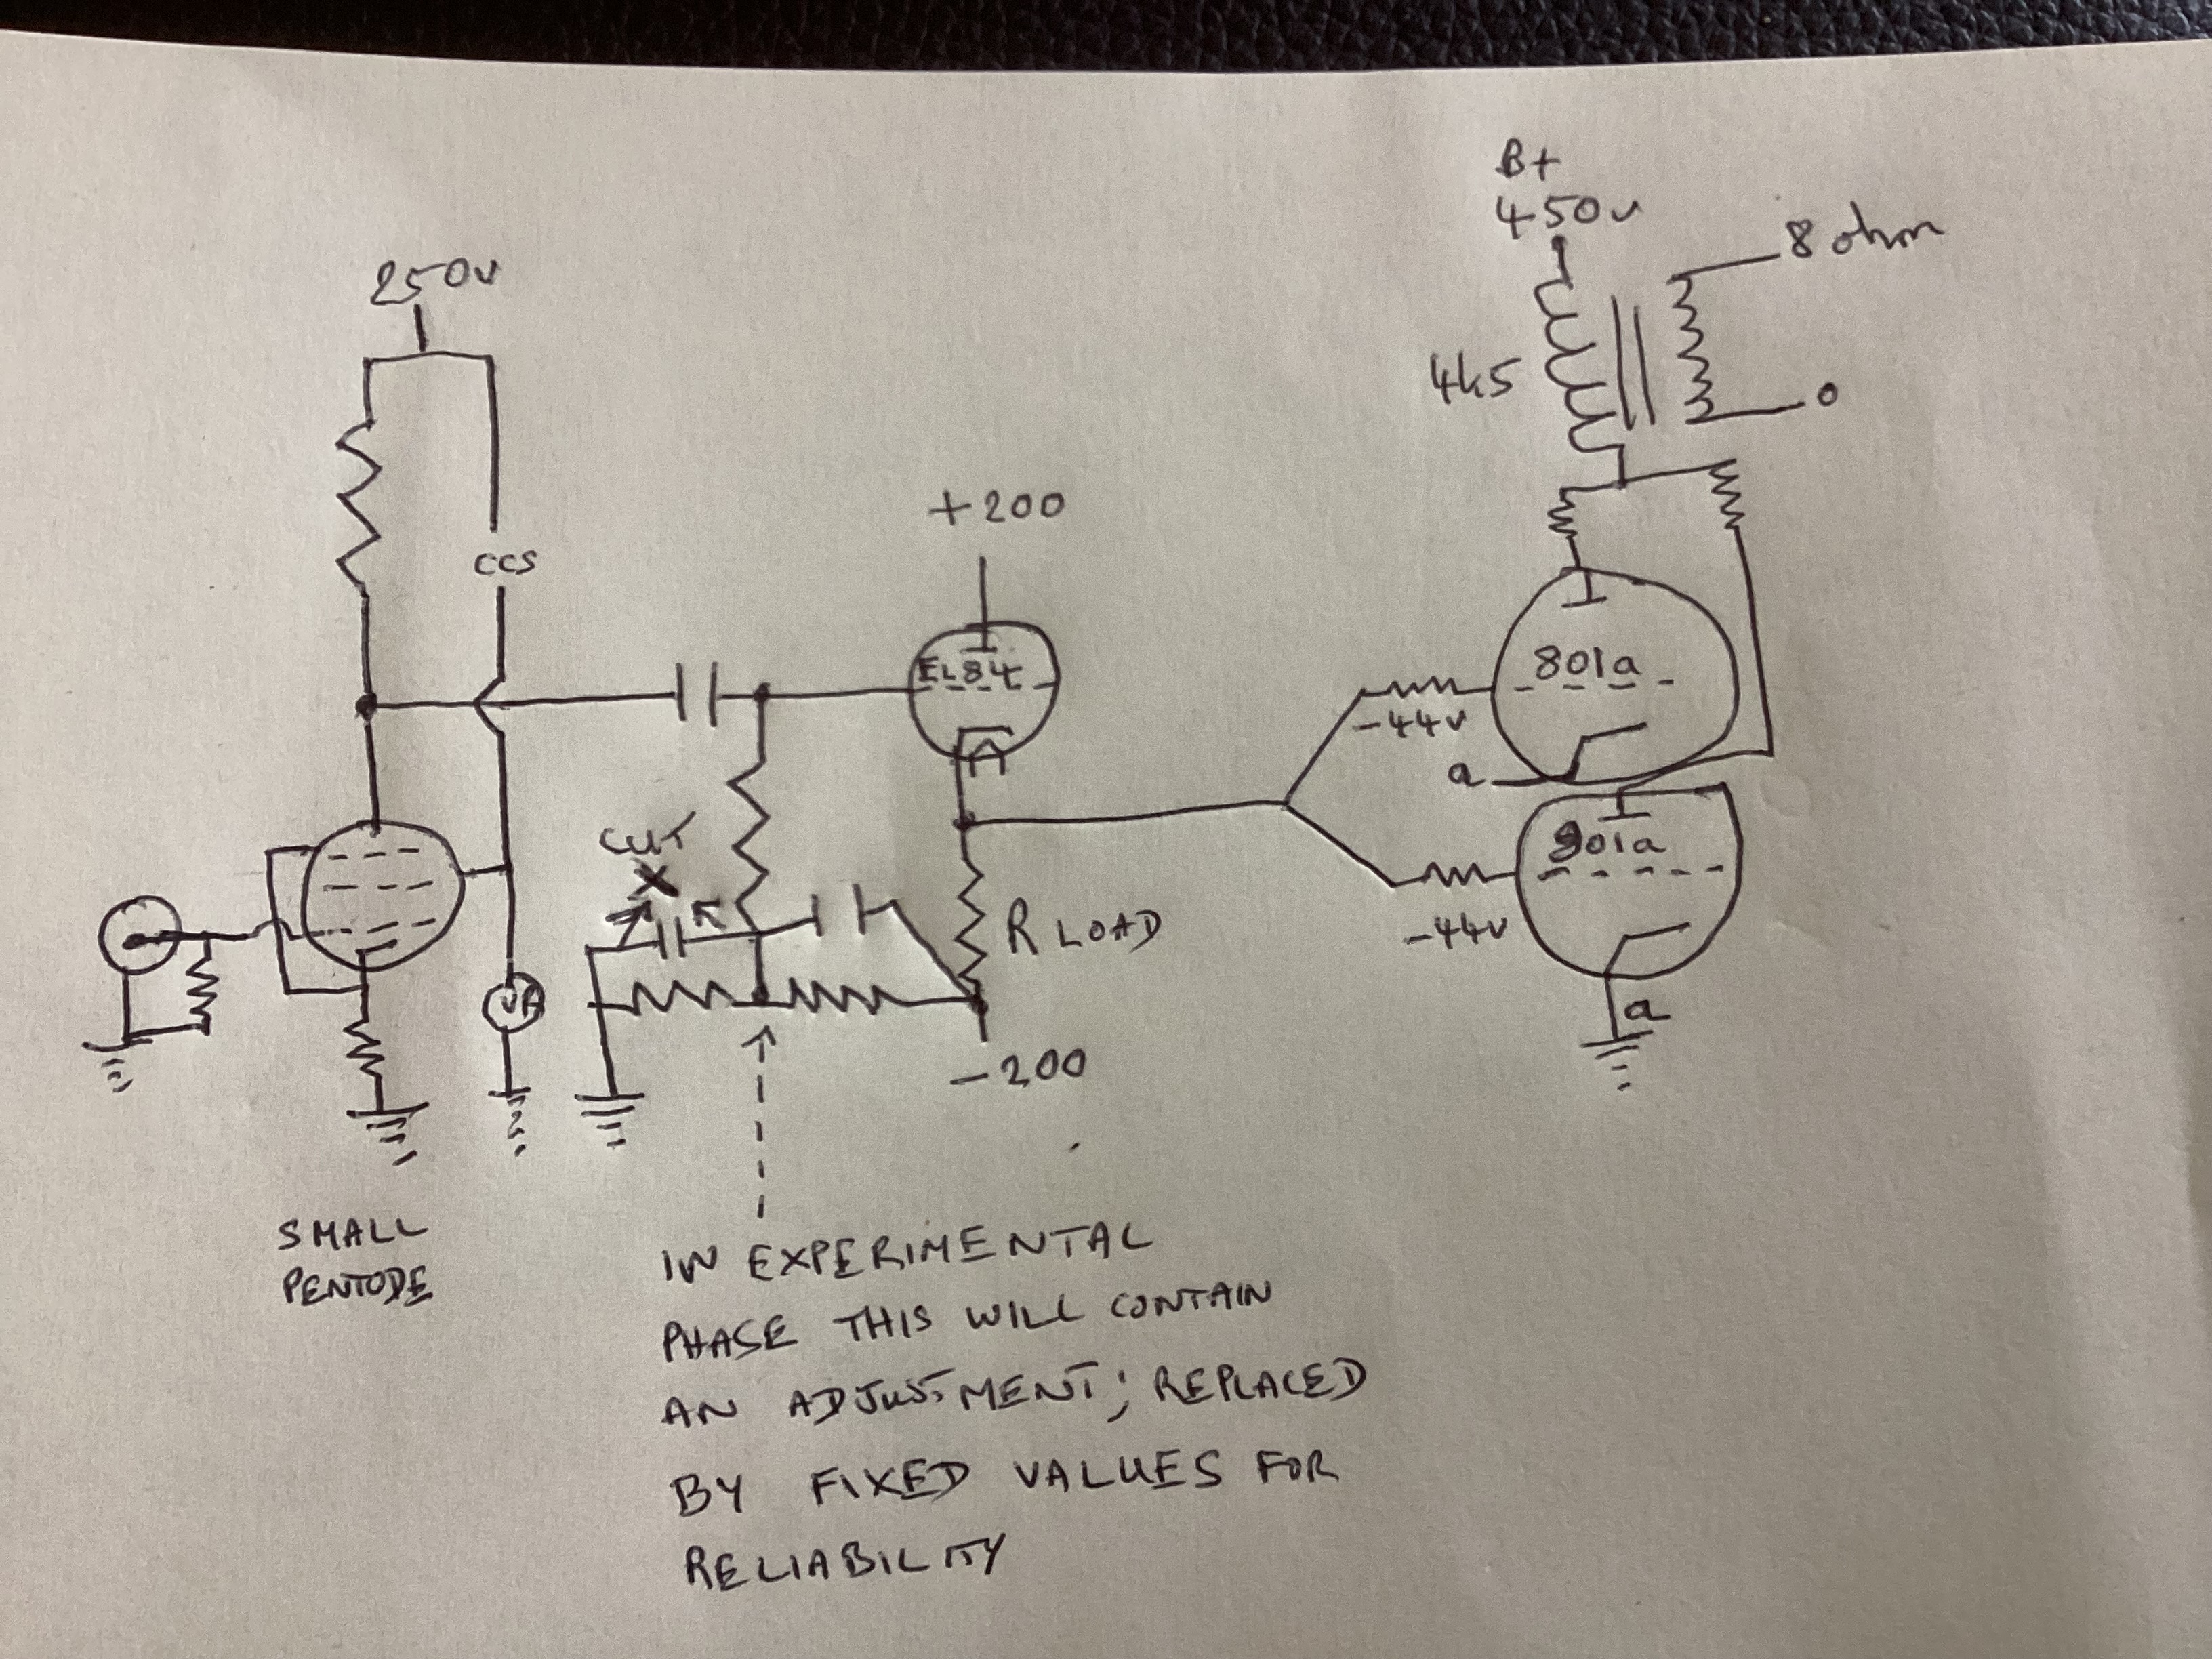 B+
450v
8 ohm
250v
4k5
0
+200
CCS
EL84
801a
-44v
a
CUT
X
801a
R LOAD
-44v
VR
a
-200
SMALL
PENTODE
IN EXPERIMENTAL
PHASE THIS WILL CONTAIN
AN ADJUSTMENT; REPLACED
BY FIXED VALUES FOR
RELIABILITY